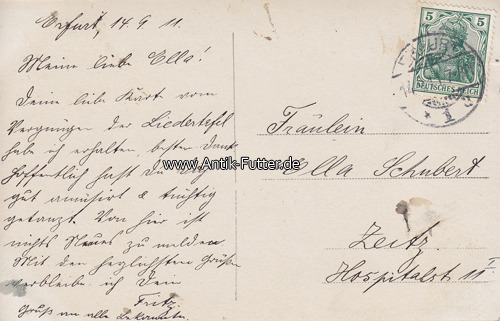 Erfurt, 14.9.11.
Meine liebe Ella!
Deine liebe Karte vom
Vergnügen der Liedertafel
habe ich erhalten, besten Dank
Hoffentlich hast Du Dich
gut amüsirt & tüchtig
getanzt. Von hier ist
nichts Neues zu melden
Mit den herzlichsten Grüßen
verbleibe ich Dein
Fritz.
Gruß an alle Bekannten
5 5
DEUTSCHES REICH
ERFURT
Fräulein
Ella Schubert
Zeitz.
Hospitalstr 11
www.Antik-Futter.de